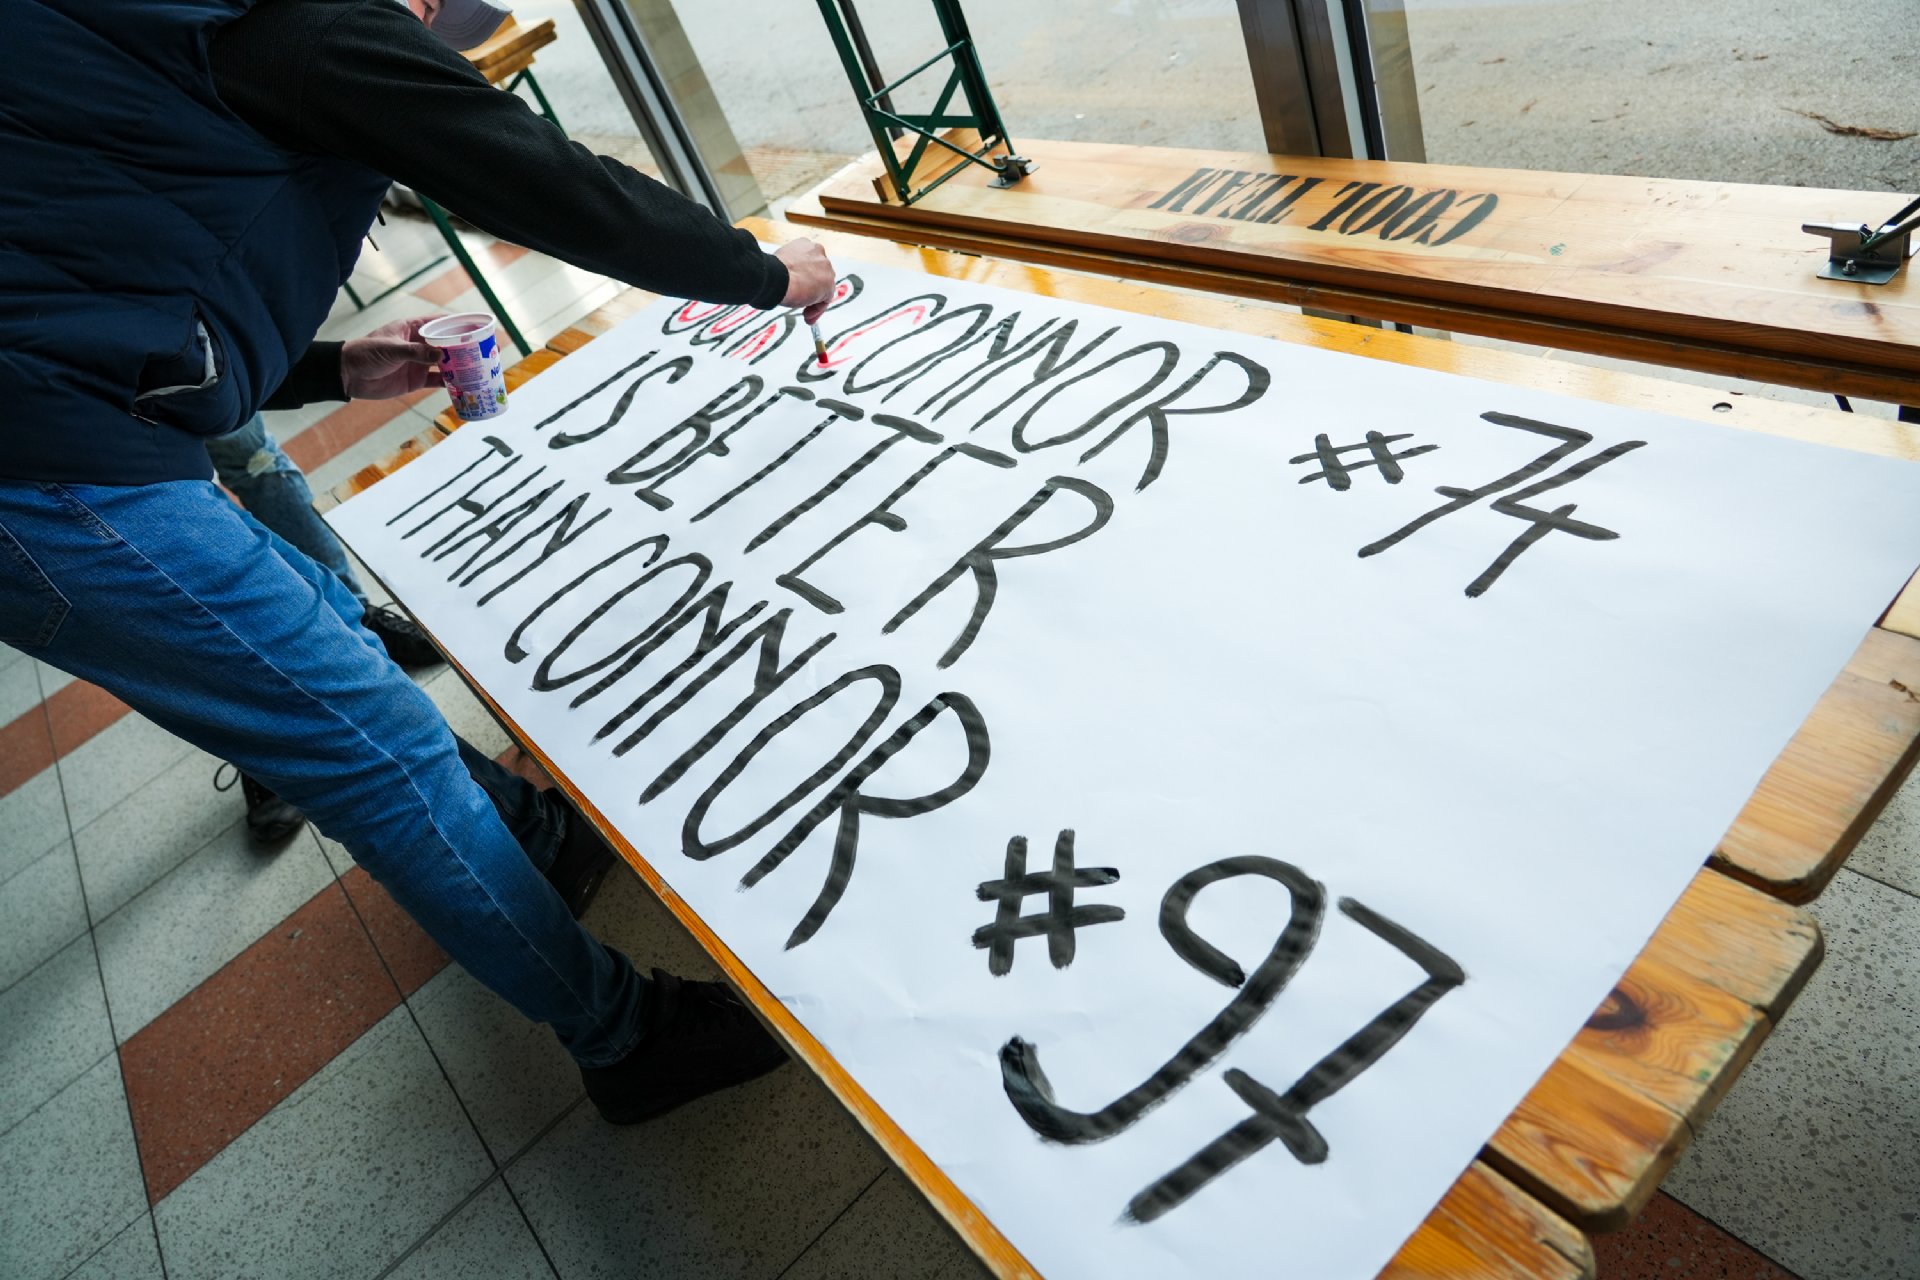 OUR CONNOR #74
IS BETTER
THAN CONNOR #97
COOL TEAM